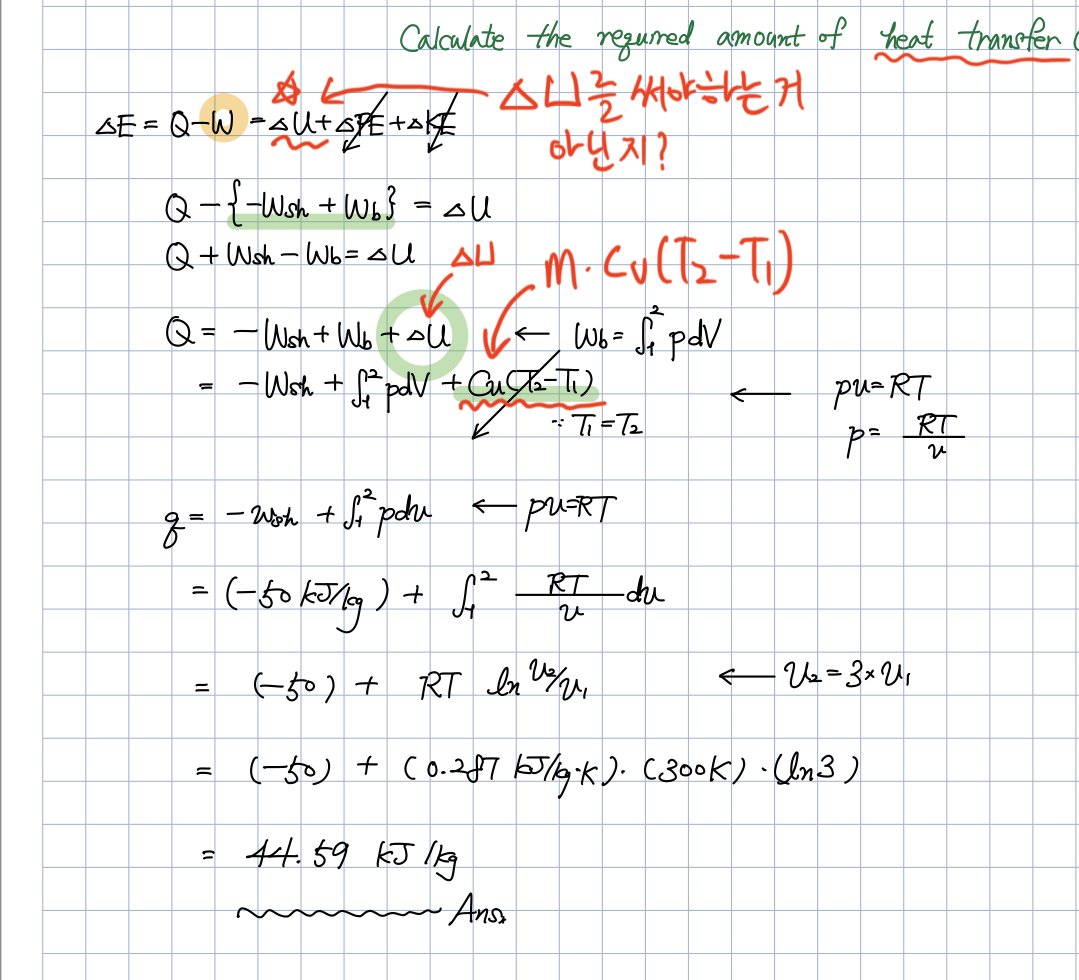 Calculate the required amount of heat transfer (
ΔU를 써야하는거
아닌지?
ΔE = Q-W = ΔU + ΔPE + ΔKE
Q - {-Wsh + Wb} = ΔU
Q + Wsh - Wb = ΔU
ΔU
m·Cv(T2-T1)
Q = -Wsh + Wb + ΔU ← Wb = ∫₁² pdV
= -Wsh + ∫₁² pdV + Cv(T2-T1) ← pv=RT
∵ T1=T2
p = RT/v
q = -wsh + ∫₁² pdv ← pv=RT
= (-50 kJ/kg) + ∫₁² RT/v dv
= (-50) + RT ln v2/v1 ← v2 = 3×v1
= (-50) + (0.287 kJ/kg·K)·(300K)·(ln3)
= 44.59 kJ/kg
Ans